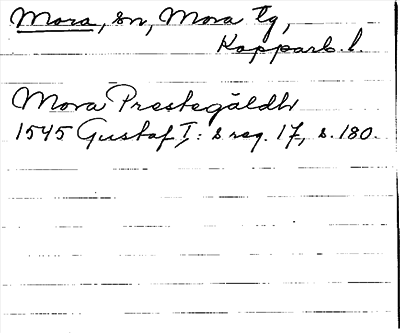 Mora, sn, Mora tg,
Kopparb. l.
Mora Prestegäldh
1545 Gustaf I:s reg. 17, s. 180.